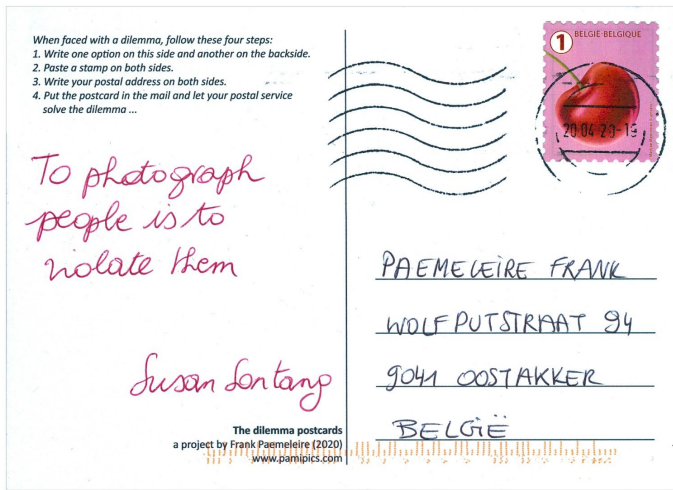 When faced with a dilemma, follow these four steps:
1. Write one option on this side and another on the backside.
2. Paste a stamp on both sides.
3. Write your postal address on both sides.
4. Put the postcard in the mail and let your postal service
solve the dilemma ...
To photograph
people is to
violate them
Susan Sontang
The dilemma postcards
a project by Frank Paemeleire (2020)
www.pamipics.com
1
BELGIE-BELGIQUE
20 04 20-19
PAEMELEIRE FRANK
WOLFPUTSTRAAT 94
9041 OOSTAKKER
BELGIË